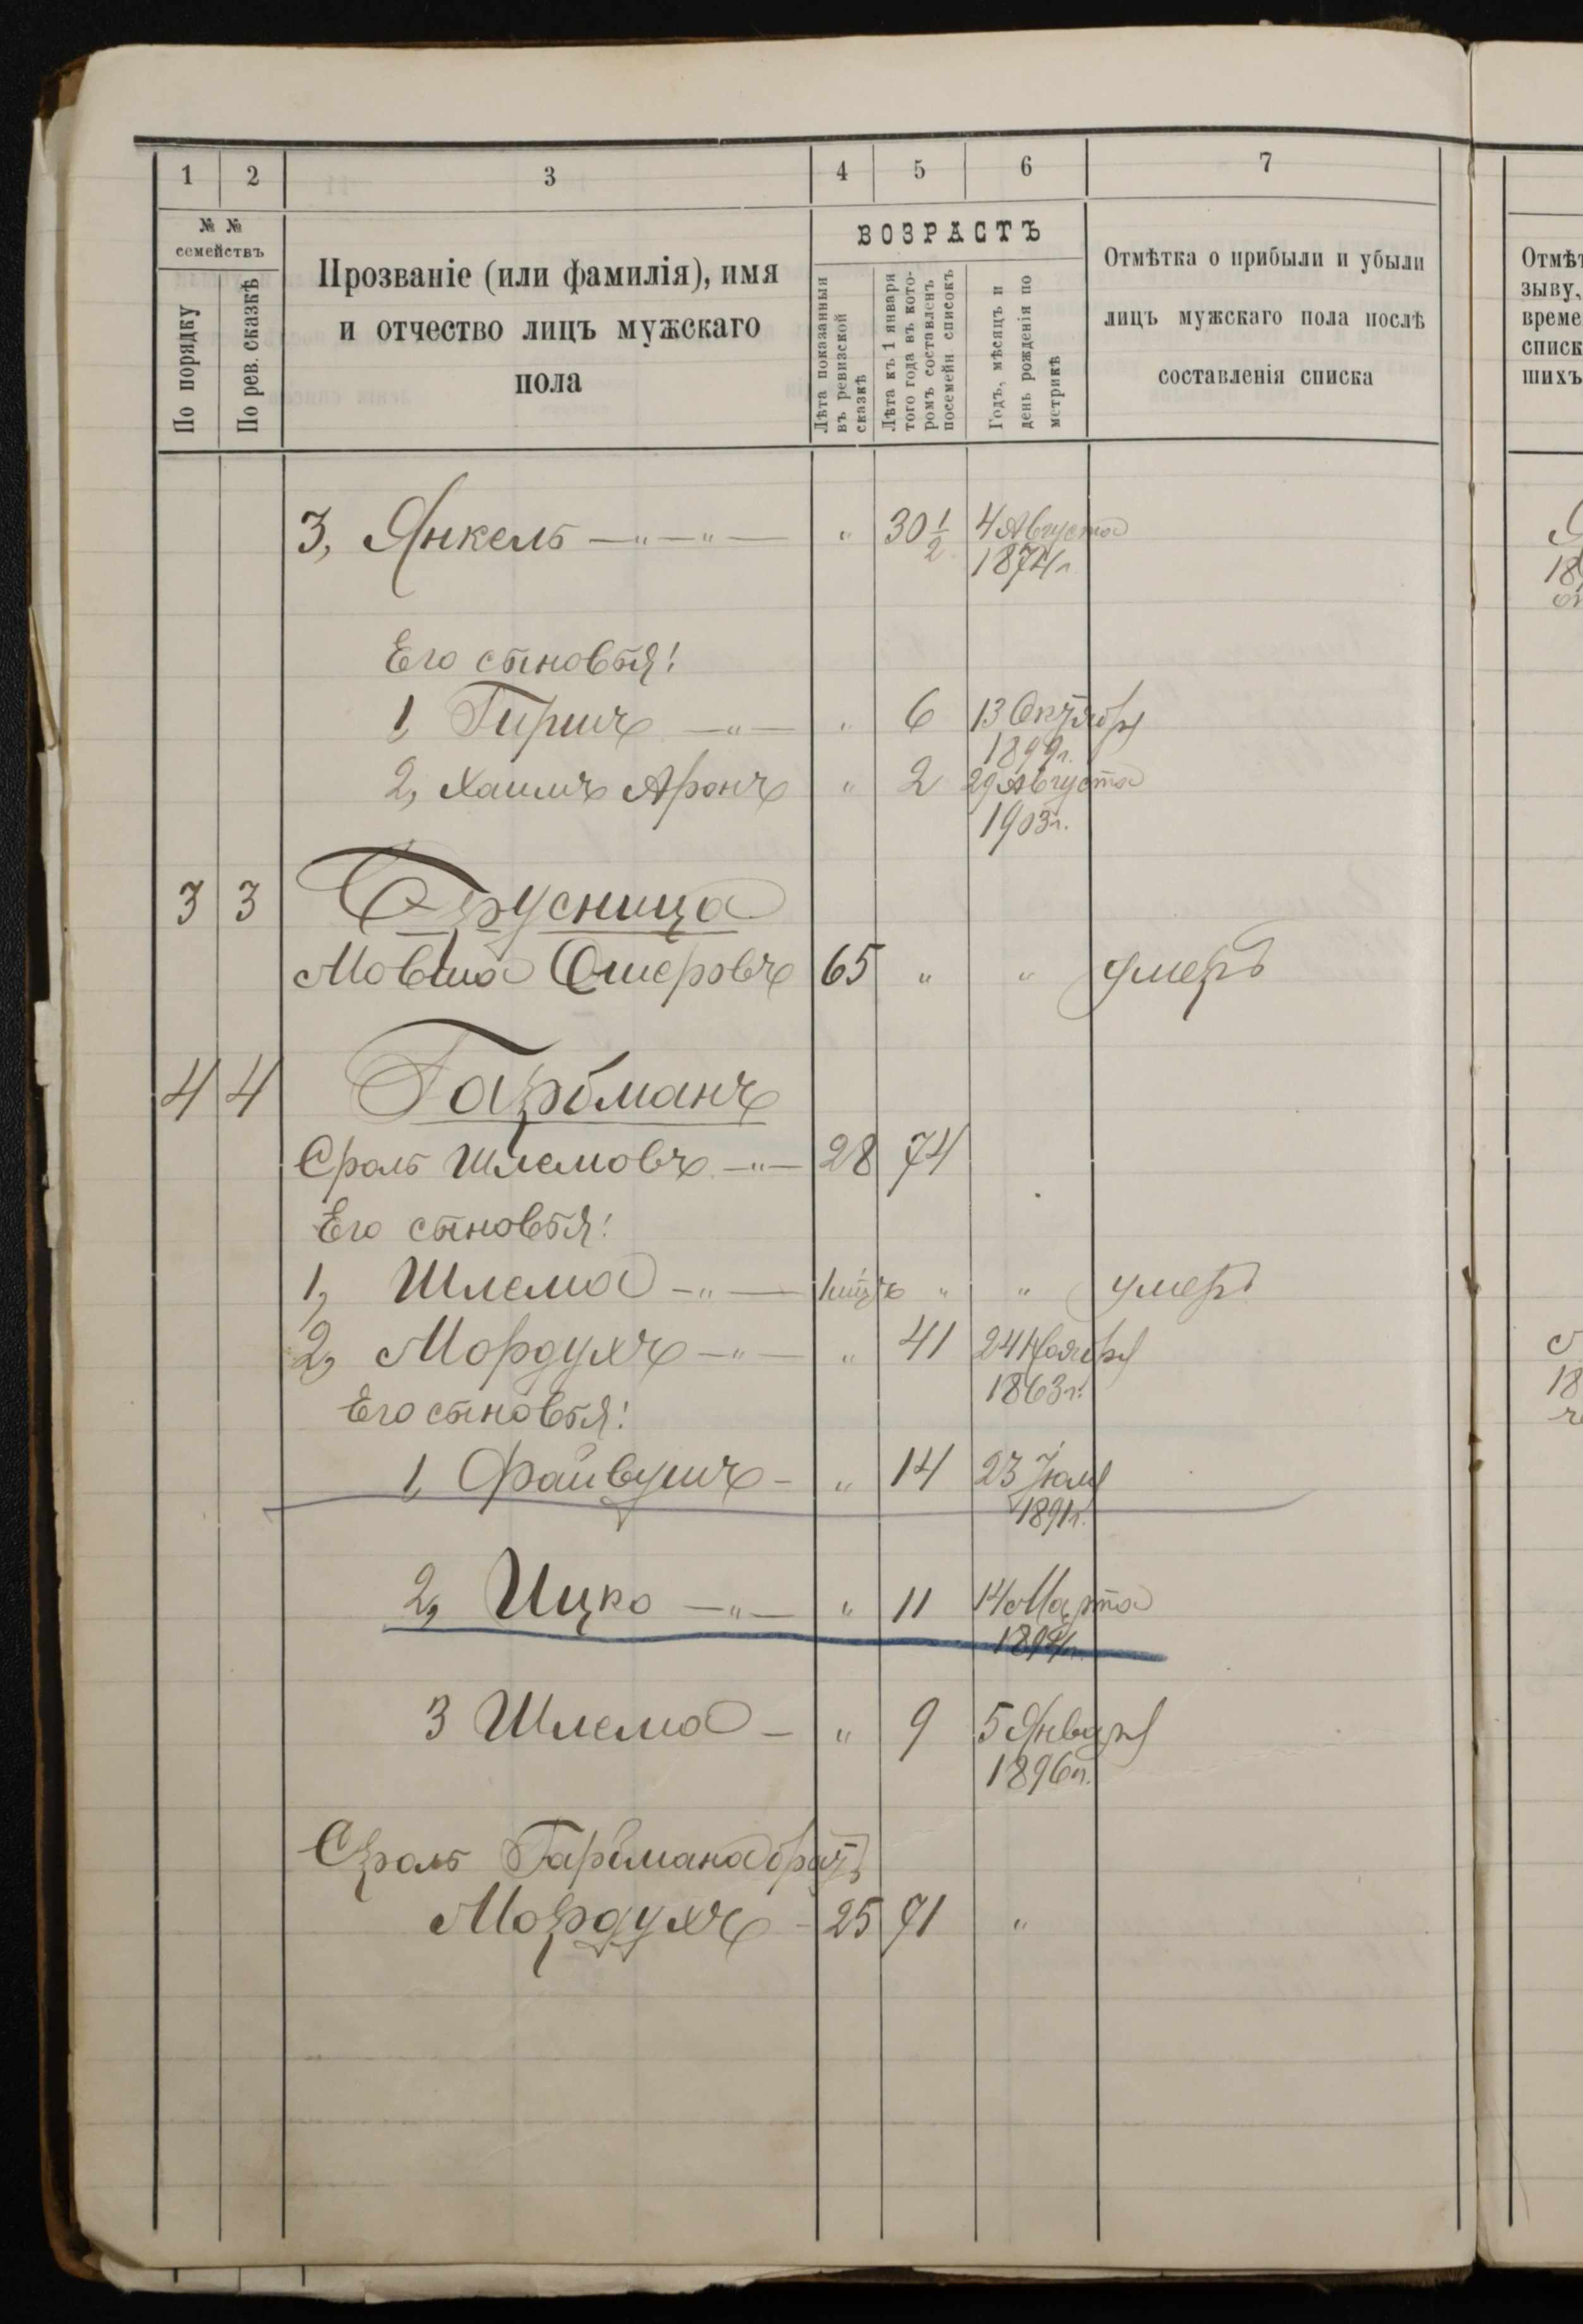 1 2 3 4 5 6 7
№ № семействъ
По порядку
По рев. сказкѣ
Прозваніе (или фамилія), имя
и отчество лицъ мужскаго
пола
ВОЗРАСТЪ
Лѣта показанныя
въ ревизской
сказкѣ
Лѣта къ 1 января
того года въ кото-
ромъ составленъ
посемейн. списокъ
Годъ, мѣсяцъ и
день рожденія по
метрикѣ
Отмѣтка о прибыли и убыли
лицъ мужскаго пола послѣ
составленія списка
Отмѣт
зыву,
време
списк
шихъ
3, Янкель —„—„— „ 30 1/2 4 Августа
1874 г.
Его сыновья:
1, Гиршъ —„— „ 6 13 Октября
1899 г.
2, Хаимъ Аронъ „ 2 29 Августа
1903 г.
3 3 Брусница
Мовша Ошеровъ 65 „ „ умеръ
4 4 Гарбманъ
Сроль Шлемовъ —„— 28 74
Его сыновья:
1, Шлема —„— „ „ умеръ
2, Мордухъ —„— „ 41 24 Ноября
1863 г.
Его сыновья:
1, Файвушъ — „ 14 23 Іюля
1891 г.
2, Ицко —„— „ 11 14 Марта
1894 г.
3 Шлема — „ 9 5 Января
1896 г.
Сроль Гарбмана братъ
Мордухъ - 25 71 „